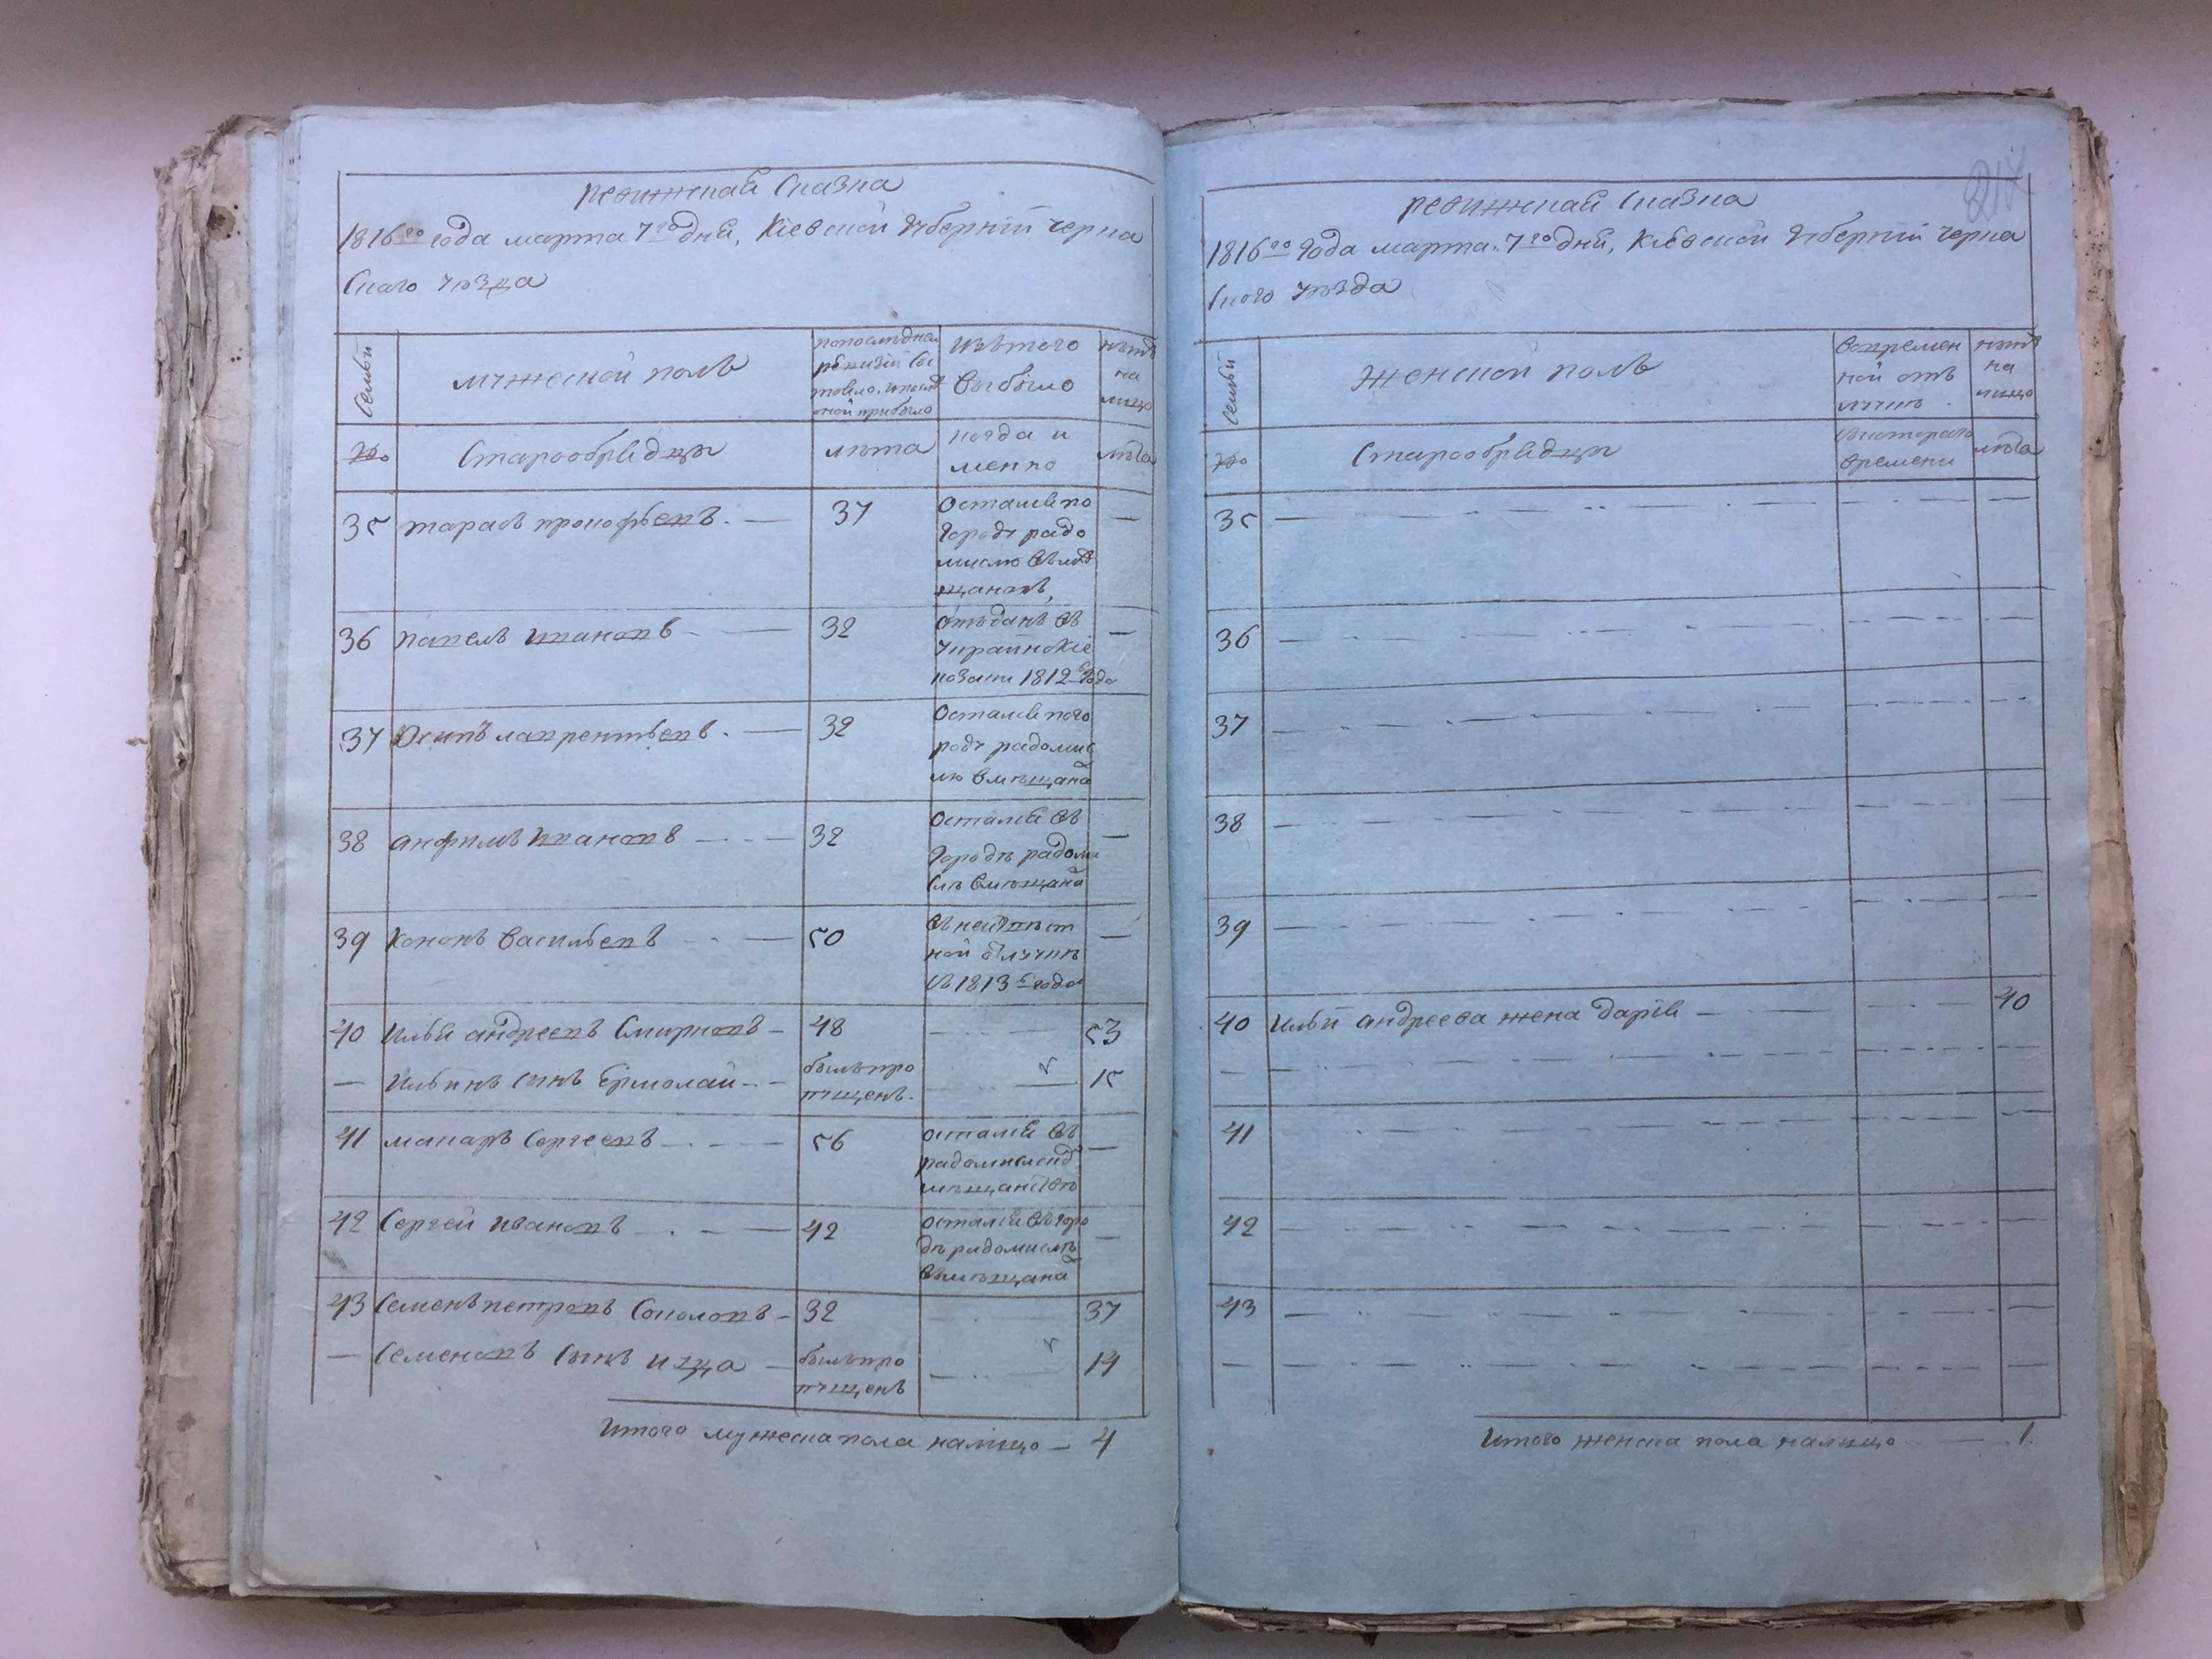 ревижская сказка
1816го года марта 7го дня, Кіевской губерніи черка
скаго уезда
семьи
мужеской полъ
попоследней
ревизіи сос
тояло, и после
оной прибыло
изъ того
выбыло
ныне
на
лицо
№
Старообрядцы
лета
когда и
менно
лета
35 тарасъ прокофьевъ. — 37
осталсяпо
городу радо
мислю вь ме
щанахъ, —
36 павелъ ивановъ — 32
отъданъ въ
украинскіе
козаки 1812 года —
37 Осипъ лаврентьевъ. — 32
осталсяпого
роду радомис
лю вмещана
38 анфимъ ивановъ — 32
остался въ
городе радоми
сле вмещана —
39 Кононъ васильевъ — 50
въ неизвест
ной отлучке
съ 1813 года —
40 Илья андреевъ Смирновъ — 48 — 53
— Ильинъ сынъ Ермолай — былъ про
пущенъ. — 15
41 макаръ Сергеевъ — 56
остался въ
радомысле
мещанстве —
42 Сергей ивановъ — 42
остался въ горо
де радомисле
вмещана —
43 Семенъ петровъ Соколовъ — 32 — 37
— Семеновъ сынъ — былъ про
пущенъ — 14
Итого мужеска пола налицо — 4
217
ревижская сказка
1816го года марта 7го дня, Кіевской губерніи черка
ского уезда
семьи
Женской полъ
вовремен
ной отъ
лучке
ныне
на
лицо
№
Старообрядцы
скотораго
времени
лета
35 —
36 —
37 —
38 —
39 —
40 Ильи андреева жена дарія — 40
—
41 —
42 —
43 —
—
Итого женска пола налицо — 1.